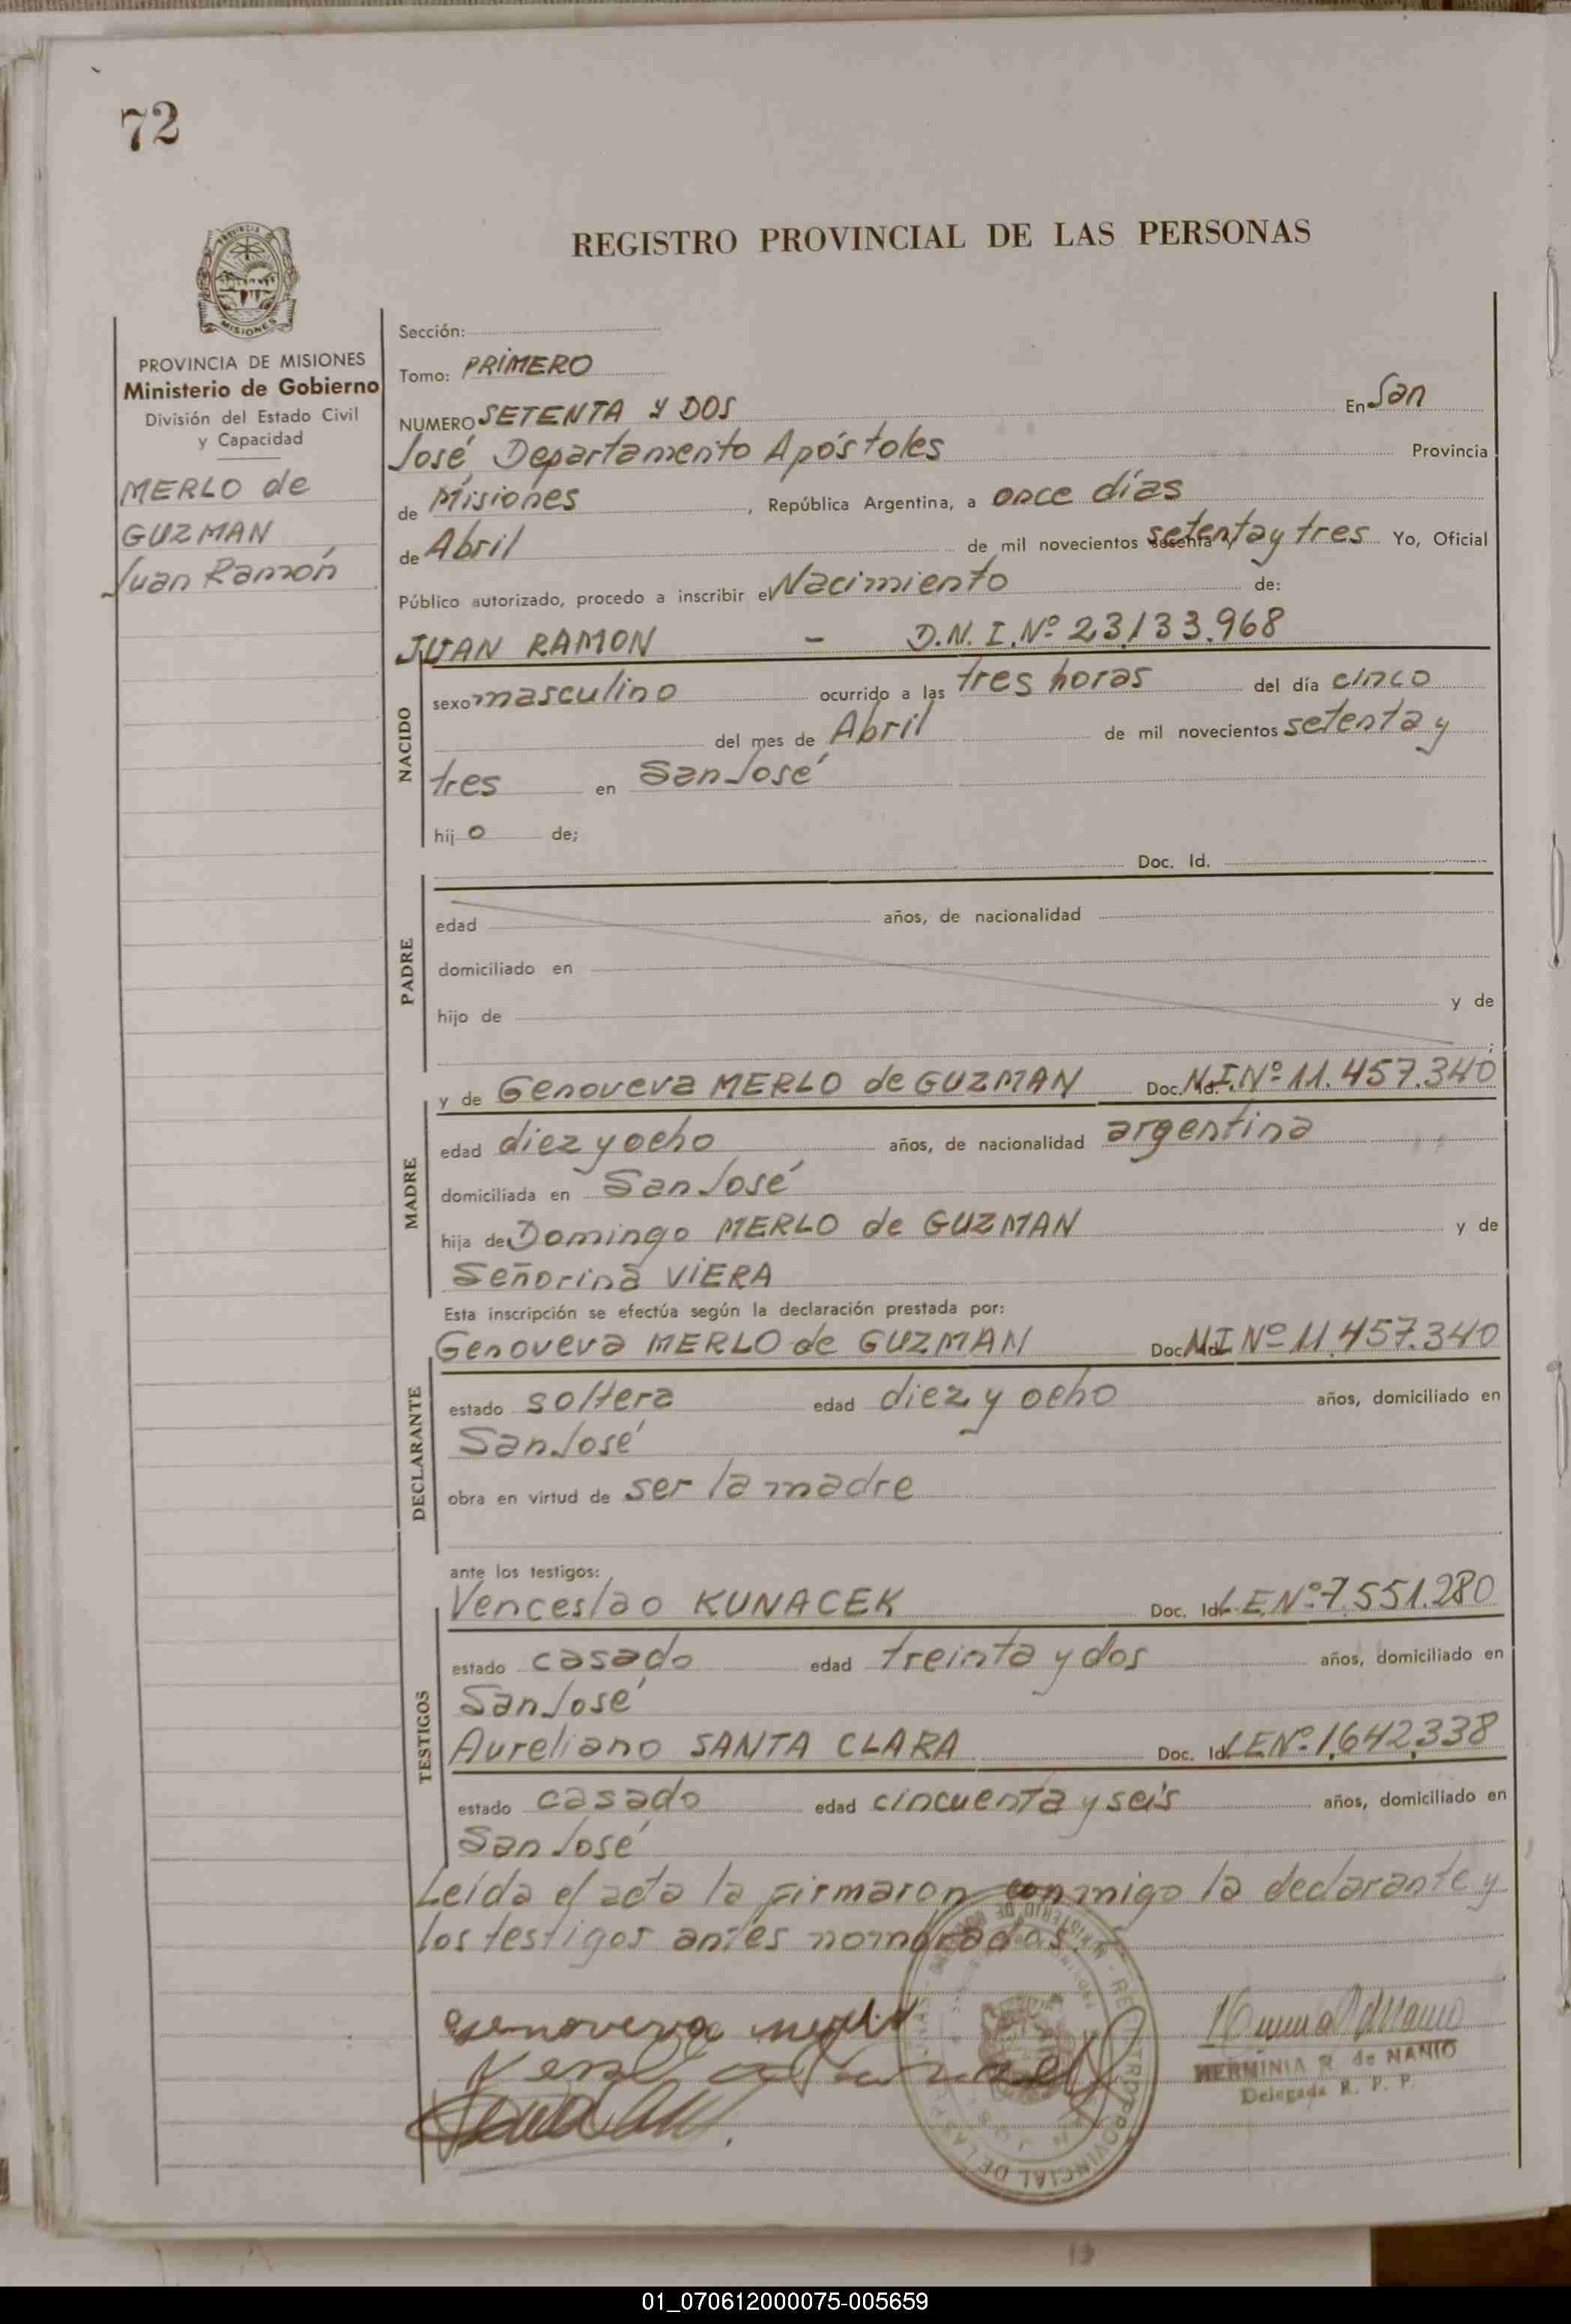 72
REGISTRO PROVINCIAL DE LAS PERSONAS
PROVINCIA
MISIONES
PROVINCIA DE MISIONES
Ministerio de Gobierno
División del Estado Civil
y Capacidad
MERLO de
GUZMAN
Juan Ramón
Sección:
Tomo: PRIMERO
NUMERO SETENTA Y DOS En San
José Departamento Apóstoles Provincia
de Misiones, República Argentina, a once días
de Abril de mil novecientos sesenta y setenta y tres Yo, Oficial
Público autorizado, procedo a inscribir el Nacimiento de:
JUAN RAMON - D.N.I.Nº 23.133.968
NACIDO
sexo masculino ocurrido a las tres horas del día cinco
del mes de Abril de mil novecientos setenta y
tres en San José
hij o de;
Doc. Id.
PADRE
edad años, de nacionalidad
domiciliado en
hijo de y de
;
MADRE
y de Genoveva MERLO de GUZMAN Doc. Id. N.I.Nº 11.457.340
edad diez y ocho años, de nacionalidad argentina
domiciliada en San José
hija de Domingo MERLO de GUZMAN y de
Señorina VIERA
Esta inscripción se efectúa según la declaración prestada por:
DECLARANTE
Genoveva MERLO de GUZMAN Doc. Id. N.I Nº 11.457.340
estado soltera edad diez y ocho años, domiciliado en
San José
obra en virtud de ser la madre
ante los testigos:
TESTIGOS
Venceslao KUNACEK Doc. Id. L.E.Nº 7.551.280
estado casado edad treinta y dos años, domiciliado en
San José
Aureliano SANTA CLARA Doc. Id. L.E.Nº 1.642.338
estado casado edad cincuenta y seis años, domiciliado en
San José
Leída el acta la firmaron conmigo la declarante y
los testigos antes nombrados.
genoveva merlo
HERMINIA R. de NANIO
Delegada R. P. P.
MINISTERIO DE - REGISTRO PROVINCIAL DE LAS
SAN JOSE
01_070612000075-005659